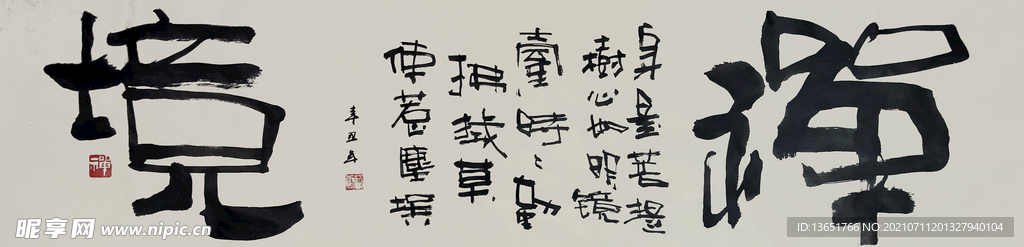 禪
身是菩提
樹心如明鏡
臺時〻勤
拂拭莫
使惹塵埃
辛丑年
境
禪
昵享网 www.nipic.cn
ID:13651766 NO:20210711201327940104